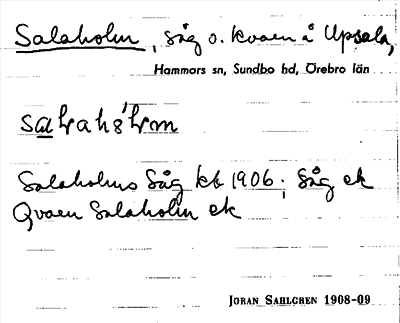 Salaholm, såg o. kvaen å Upsala,
Hammars sn, Sundbo hd, Örebro län
Salaholms Såg kb 1906; Såg ek
Qvaen Salaholm ek
JORAN SAHLGREN 1908-09